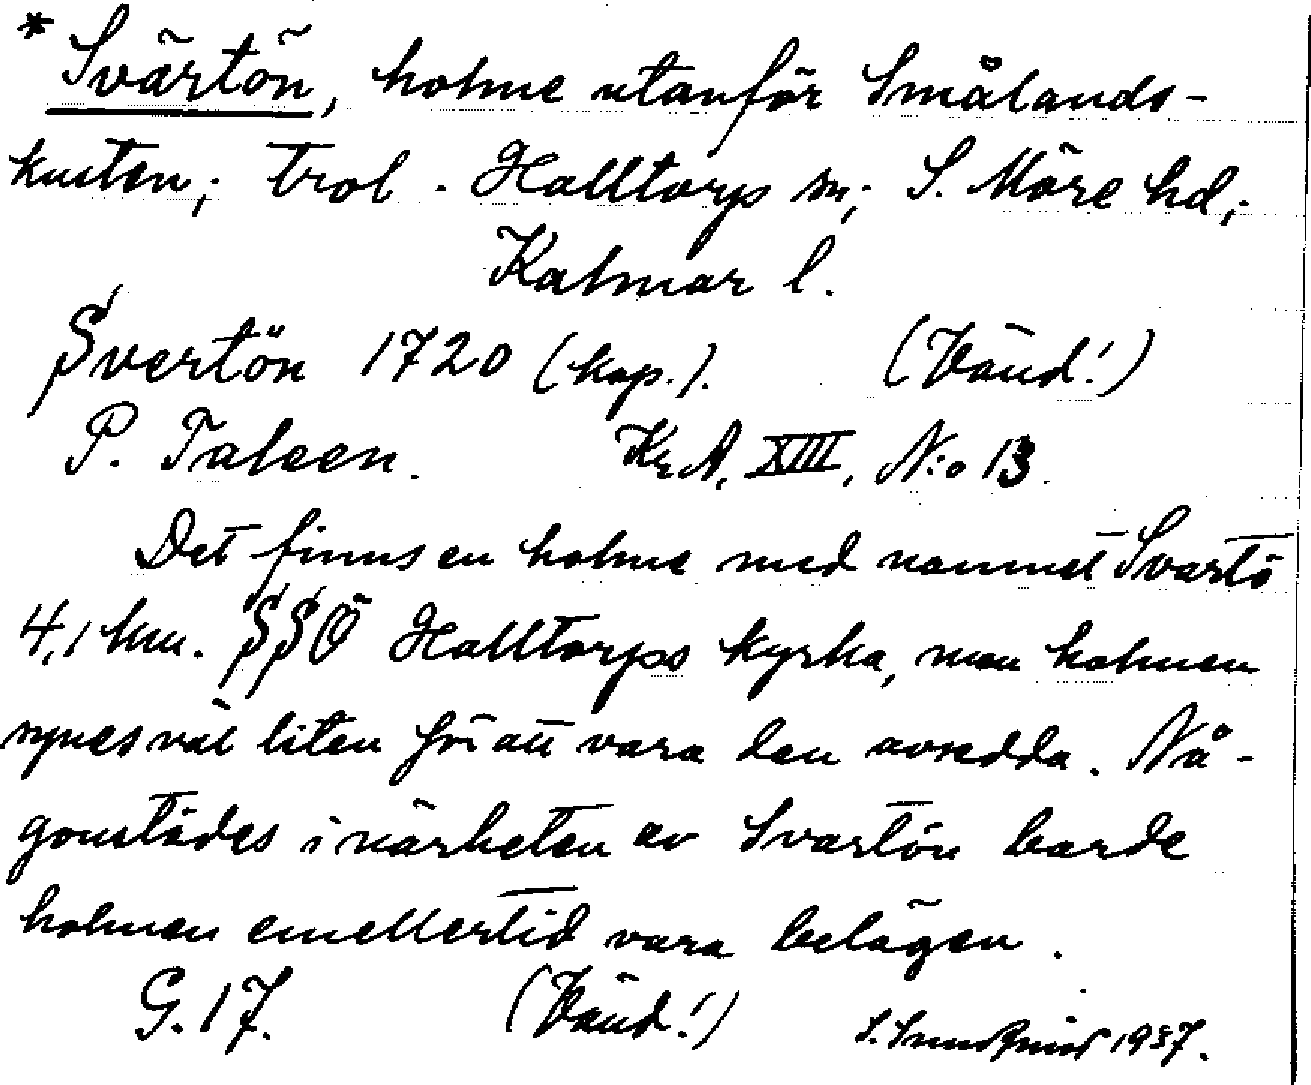 * Svärtön, holme utanför Smålands-
kusten; trol. Halltorps sn; S. Möre hd;
Kalmar l.
Svertön 1720 (kop.). (Vänd!)
P. Taleen. Kr.A. XIII, N:o 13.
Det finns en holme med namnet Svartö
4,1 km. SSÖ Halltorps kyrka, men holmen
synes väl liten för att vara den avsedda. Nå-
gonstädes i närheten av Svartön borde
holmen emellertid vara belägen.
G. 17. (Vänd!) 1937.